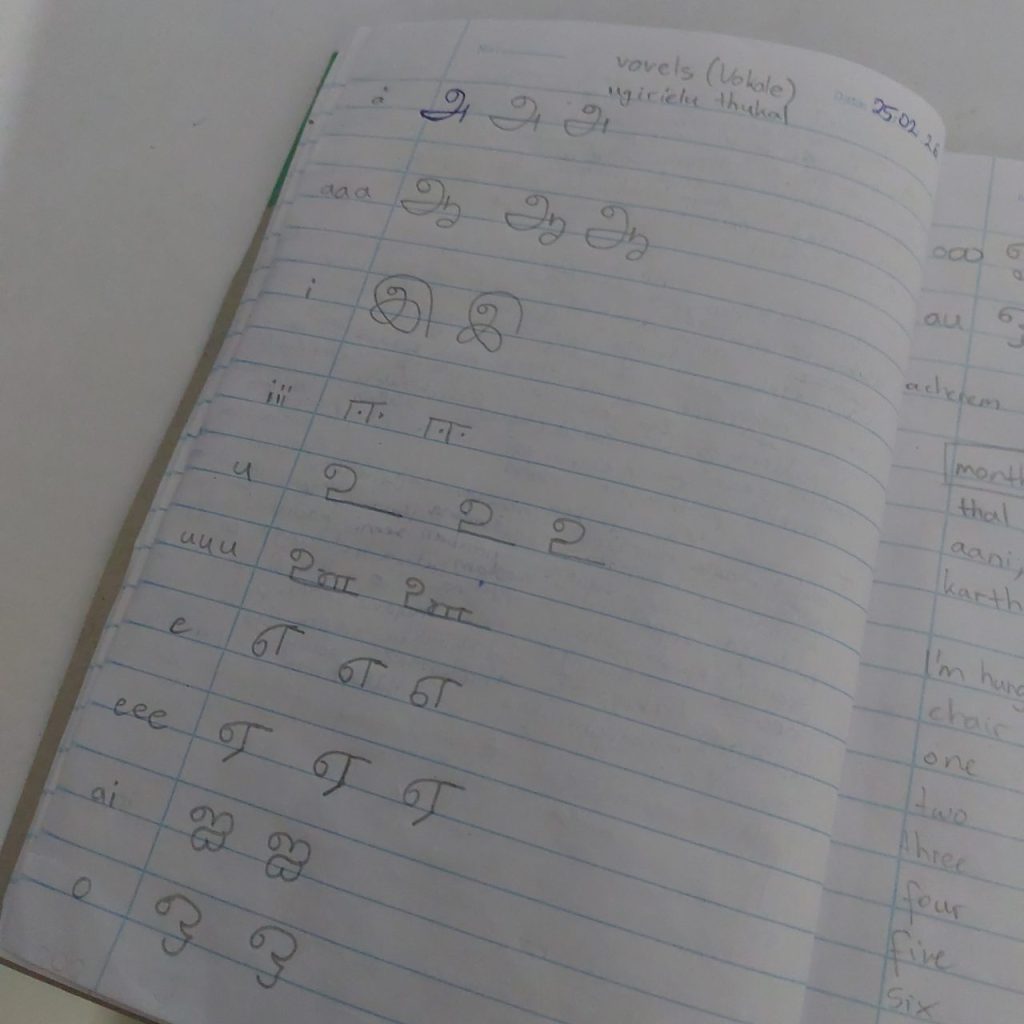 vovels (Vokale)
ugirielu thukal
25.02.26
a அ அ அ
aaa ஆ ஆ ஆ
i இ இ
iii ஈ ஈ
u உ உ உ
uuu ஊ ஊ
e எ எ எ
eee ஏ ஏ ஏ
ai ஐ ஐ
o ஒ ஒ
ooo
au
month
thal
aani,
karth
I'm hung
chair
one
two
three
four
five
six